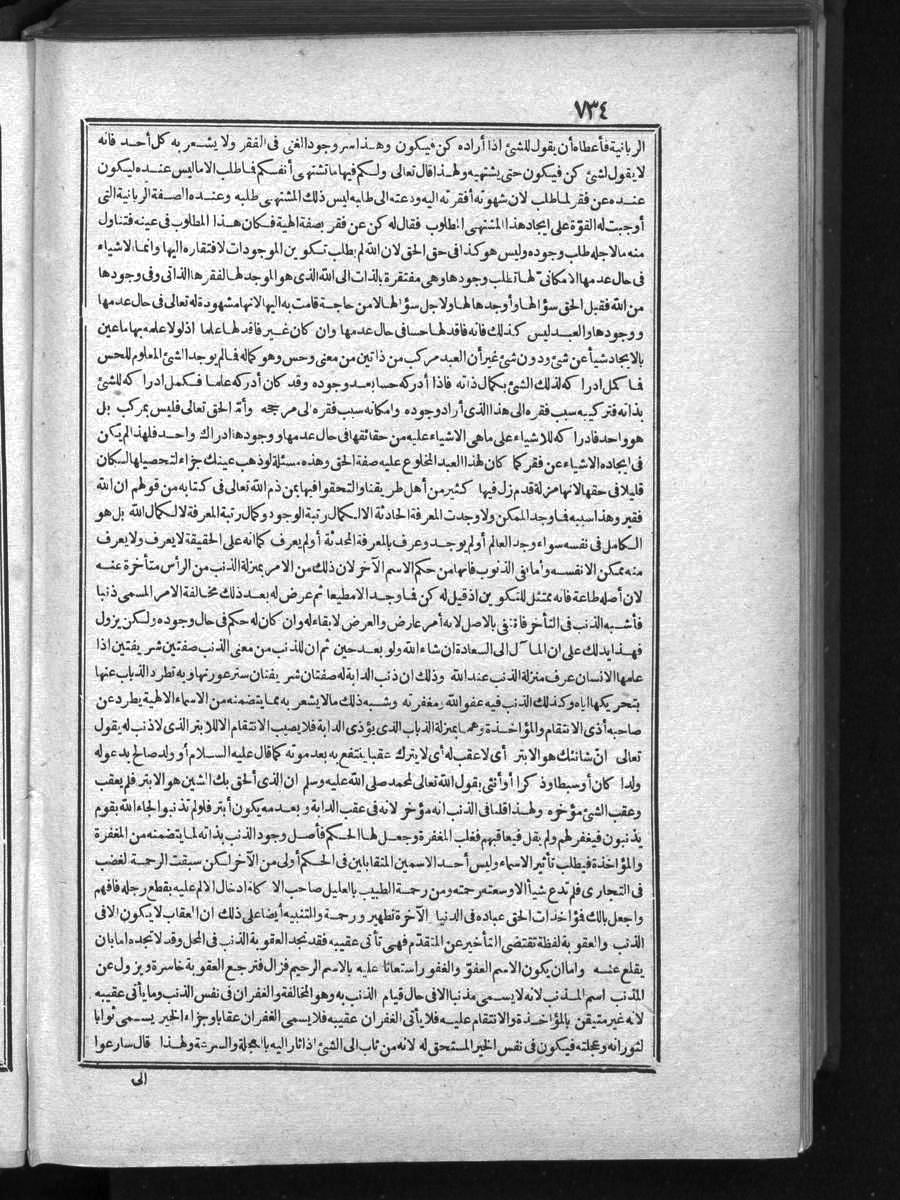 ٧٣٤
الربانية فأعطاه أن يقول للشئ اذا أراده كن فيكون وهذا سر وجود الغنى فى الفقر ولا يشعر به كل أحد فانه
لا يقول لشئ كن فيكون حتى يشتهيه ولهذا قال تعالى ولكم فيها ما تشتهى أنفسكم فما طلب الا ما ليس عنده ليكون
عنده عن فقر لما طلب لان شهوته أفقرته اليه ودعته الى طلبه ليس ذلك المشتهى طلبه وعنده الصفة الربانية التى
أوجبت له القوّة على ايجاد هذا المشتهى المطلوب فقال له كن عن فقر بصفة الهية فكان هذا المطلوب فى عينه فتناول
منه ما لاجله طلب وجوده وليس هو كذا فى حق الحق لان الله لم يطلب تكوين الموجودات لافتقاره اليها وانما الاشياء
فى حال عدمها الامكانىّ لها تطلب وجودها وهى مفتقرة بالذات الى الله الذى هو الموجد لها لفقرها الذاتى وفى وجودها
من الله فقبل الحق سؤالها وأوجدها لها ولاجل سؤالها لا من حاجة قامت به اليها لانها مشهودة له تعالى فى حال عدمها
ووجودها والعبد ليس كذلك فانه فاقد لها حسا فى حال عدمها وان كان غير فاقد لها علما اذ لولا علمه بها ما عين
بالايجاد شيأ عن شئ ودون شئ غير أن العبد مركب من ذاتين من معنى وحس وهو كماله فما لم يوجد الشئ المعلوم للحس
فما كمل ادراكه لذلك الشئ بكمال ذاته فاذا أدركه حسا بعد وجوده وقد كان أدركه علما فكمل ادراكه للشئ
بذاته فتركيبه سبب فقره الى هذا الذى أراد وجوده وامكانه سبب فقره الى مرجحه وأمّا الحق تعالى فليس بمركب بل
هو واحد فادراكه للاشياء على ما هى الاشياء عليه من حقائقها فى حال عدمها ووجودها ادراك واحد فلهذا لم يكن
فى ايجاده الاشياء عن فقر كما كان لهذا العبد المخلوع عليه صفة الحق وهذه مسئلة لو ذهب عينك جزاء لتحصيلها لكان
قليلا فى حقها لانها مزلة قدم زل فيها كثير من أهل طريقنا والتحقوا فيها بمن ذم الله تعالى فى كتابه من قولهم ان الله
فقير وهذا سببه فما وجد الممكن ولا وجدت المعرفة الحادثة الا لكمال رتبة الوجود وكمال رتبة المعرفة لا لكمال الله بل هو
الكامل فى نفسه سواء وجد العالم أو لم يوجد وعرف بالمعرفة المحدثة أو لم يعرف كما انه على الحقيقة لا يعرف ولا يعرف
منه ممكن الا نفسه وأما فى الذنوب فانها من حكم الاسم الآخر لان ذلك من الامر بمنزلة الذنب من الرأس متأخرة عنه
لان أصله طاعة فانه ممتثل للتكوين اذ قيل له كن فما وجد الا مطيعا ثم عرض له بعد ذلك مخالفة الامر المسمى ذنبا
فأشبه الذنب فى التأخر فانتفى بالاصل لانه أمر عارض والعرض لا بقاء له وان كان له حكم فى حال وجوده ولكن يزول
فهذا يدلك على ان المآل الى السعادة ان شاء الله ولو بعد حين ثم ان للذنب من معنى الذنب صفتين شريفتين اذا
علمها الانسان عرف منزلة الذنب عند الله وذلك ان ذنب الدابة له صفتان شريفتان ستر عورتها وبه تطرد الذباب عنها
بتحريكها اياه وكذلك الذنب فيه عفو الله ومغفرته وشبه ذلك مما لا يشعر به مما يتضمنه من الاسماء الالهية يطرد عن
صاحبه أذى الانتقام والمؤاخذة وهما بمنزلة الذباب الذى يؤذى الدابة فلا يصيب الانتقام الا للابتر الذى لا ذنب له يقول
تعالى انّ شانئك هو الابتر أى لا عقب له أى لا يترك عقبا ينتفع به بعد موته كما قال عليه السلام أو ولد صالح يدعو له
ولدا كان أو سبطا وذكرا أو أنثى يقول الله تعالى لمحمد صلى الله عليه وسلم ان الذى ألحق بك الشين هو الابتر فلم يعقب
وعقب الشئ مؤخره ولهذا قلنا فى الذنب انه مؤخر لانه فى عقب الدابة وبعدمه يكون أبتر فلو لم تذنبوا لجاء الله بقوم
يذنبون فيغفر لهم ولم يقل فيعاقبهم فغلب المغفرة وجعل لها الحكم فأصل وجود الذنب بذاته لما يتضمنه من المغفرة
والمؤاخذة فيطلب تأثير الاسماء وليس أحد الاسمين المتقابلين فى الحكم أولى من الآخر لكن سبقت الرحمة الغضب
فى التجارى فلم تدع شيأ الا وسعته رحمته ومن رحمة الطبيب بالعليل صاحب الاكلة ادخال الالم عليه بقطع رجله فافهم
واجعل بالك فمؤاخذات الحق عباده فى الدنيا والآخرة تطهير ورحمة والتنبيه أيضا على ذلك ان العقاب لا يكون الا فى
الذنب والعقوبة لفظة تقتضى التأخير عن المتقدّم فهى تأتى عقيبه فقد تجد العقوبة الذنب فى المحل وقد لا تجده اما بان
يقلع عنه واما ان يكون الاسم العفوّ والغفور استعانا عليه بالاسم الرحيم فزال فترجع العقوبة خاسرة ويزول عن
المذنب اسم المذنب لانه لا يسمى مذنبا الا فى حال قيام الذنب به وهو المخالفة والغفران فى نفس الذنب وما يأتى عقيبه
لانه غير متيقن بالمؤاخذة والانتقام عليه فلا يأتى الغفران عقيبه فلا يسمى الغفران عقابا وجزاء الخير يسمى ثوابا
لثورانه وعجلته فيكون فى نفس الخير المستحق له لانه من ثاب الى الشئ اذا ثار اليه بالعجلة والسرعة ولهذا قال سارعوا
الى